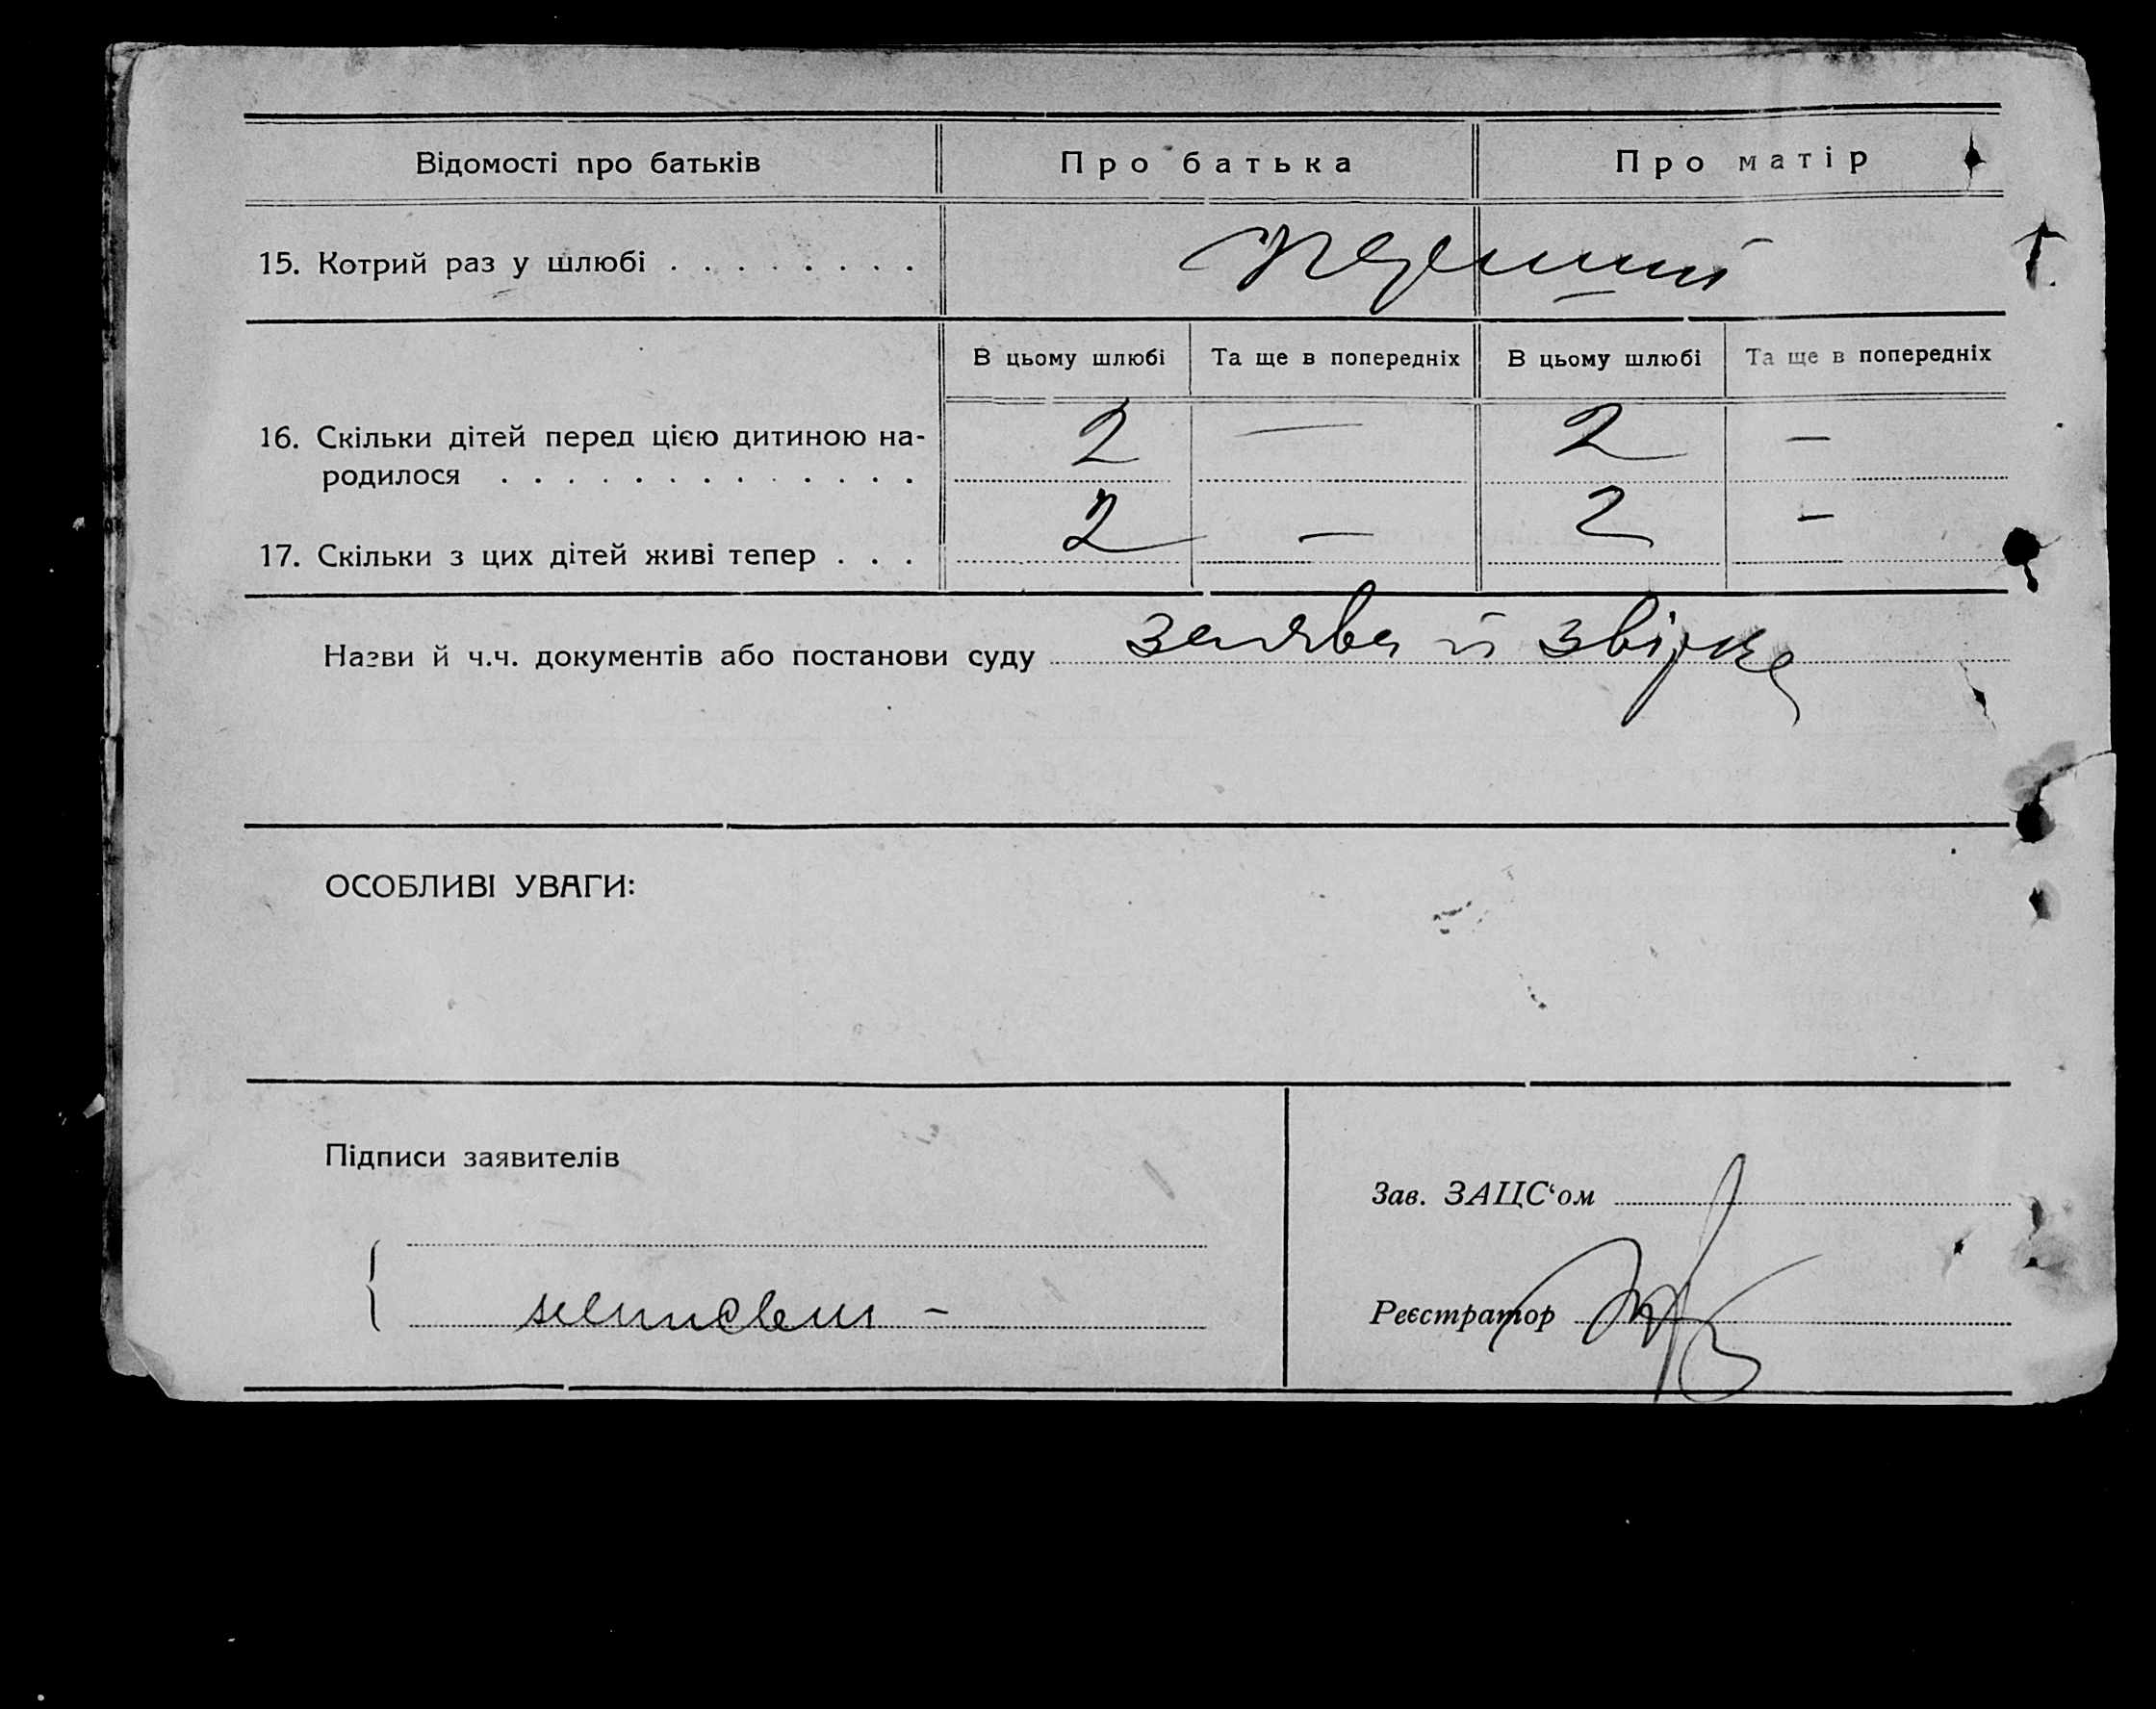 Відомості про батьків Про батька Про матір
15. Котрий раз у шлюбі . . . . . . . . перший
В цьому шлюбі Та ще в попередніх В цьому шлюбі Та ще в попередніх
16. Скільки дітей перед цією дитиною на-
родилося . . . . . . . . . . . . . 2 — 2 —
17. Скільки з цих дітей живі тепер . . . 2 — 2 —
Назви й ч.ч. документів або постанови суду заява й звірка
ОСОБЛИВІ УВАГИ:
Підписи заявителів
Зав. ЗАЦС‘ом
Реєстратор